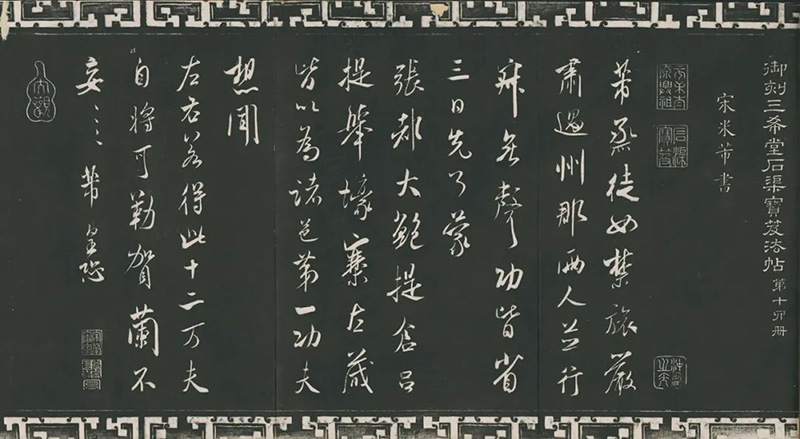 御刻三希堂石渠寶笈法帖 第十四册
宋米芾書
芾烝徒如禁旅嚴
肅過州郡兩人並行
寂無聲功皆省
三日先了蒙
張都大鮑提倉呂
提舉壕寨左藏
皆以為諸邑第一功夫
想聞
左右若得此十二万夫
自將可勒賀蘭不
妄〻〻芾皇恐